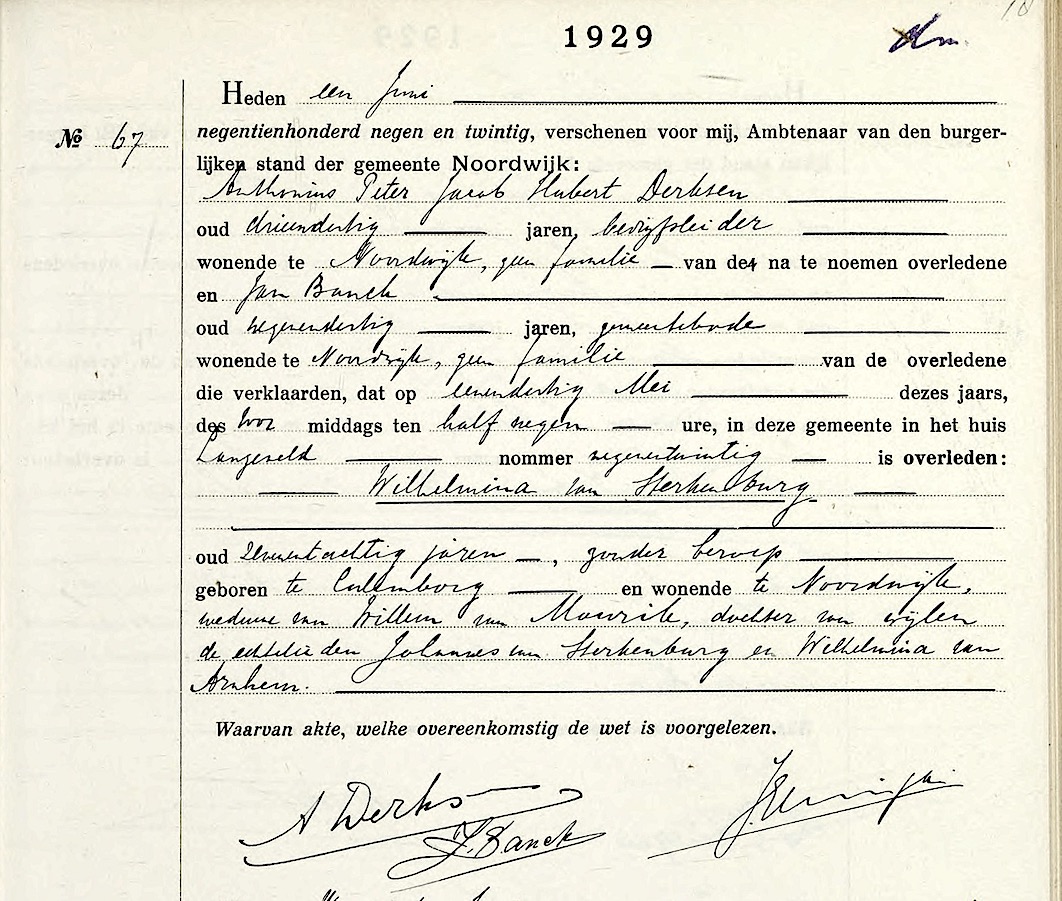 1929
Heden een Juni
№ 67
negentienhonderd negen en twintig, verschenen voor mij, Ambtenaar van den burger-
lijken stand der gemeente Noordwijk:
Anthonius Peter Jacob Hubert Derksen
oud drieendertig jaren, bedrijfsleider
wonende te Noordwijk, geen familie van de na te noemen overledene
en Jan Banck
oud negenendertig jaren, gemeentebode
wonende te Noordwijk, geen familie van de overledene
die verklaarden, dat op eenendertig Mei dezes jaars,
des voor middags ten half negen ure, in deze gemeente in het huis
Langeveld nommer negenentwintig is overleden:
Wilhelmina van Sterkenburg
oud zevenentachtig jaren, zonder beroep
geboren te Culemborg en wonende te Noordwijk,
weduwe van Willem van Maurik, dochter van wijlen
de echtelieden Johannes van Sterkenburg en Wilhelmina van
Arnhem.
Waarvan akte, welke overeenkomstig de wet is voorgelezen.
A Derks
J. Banck